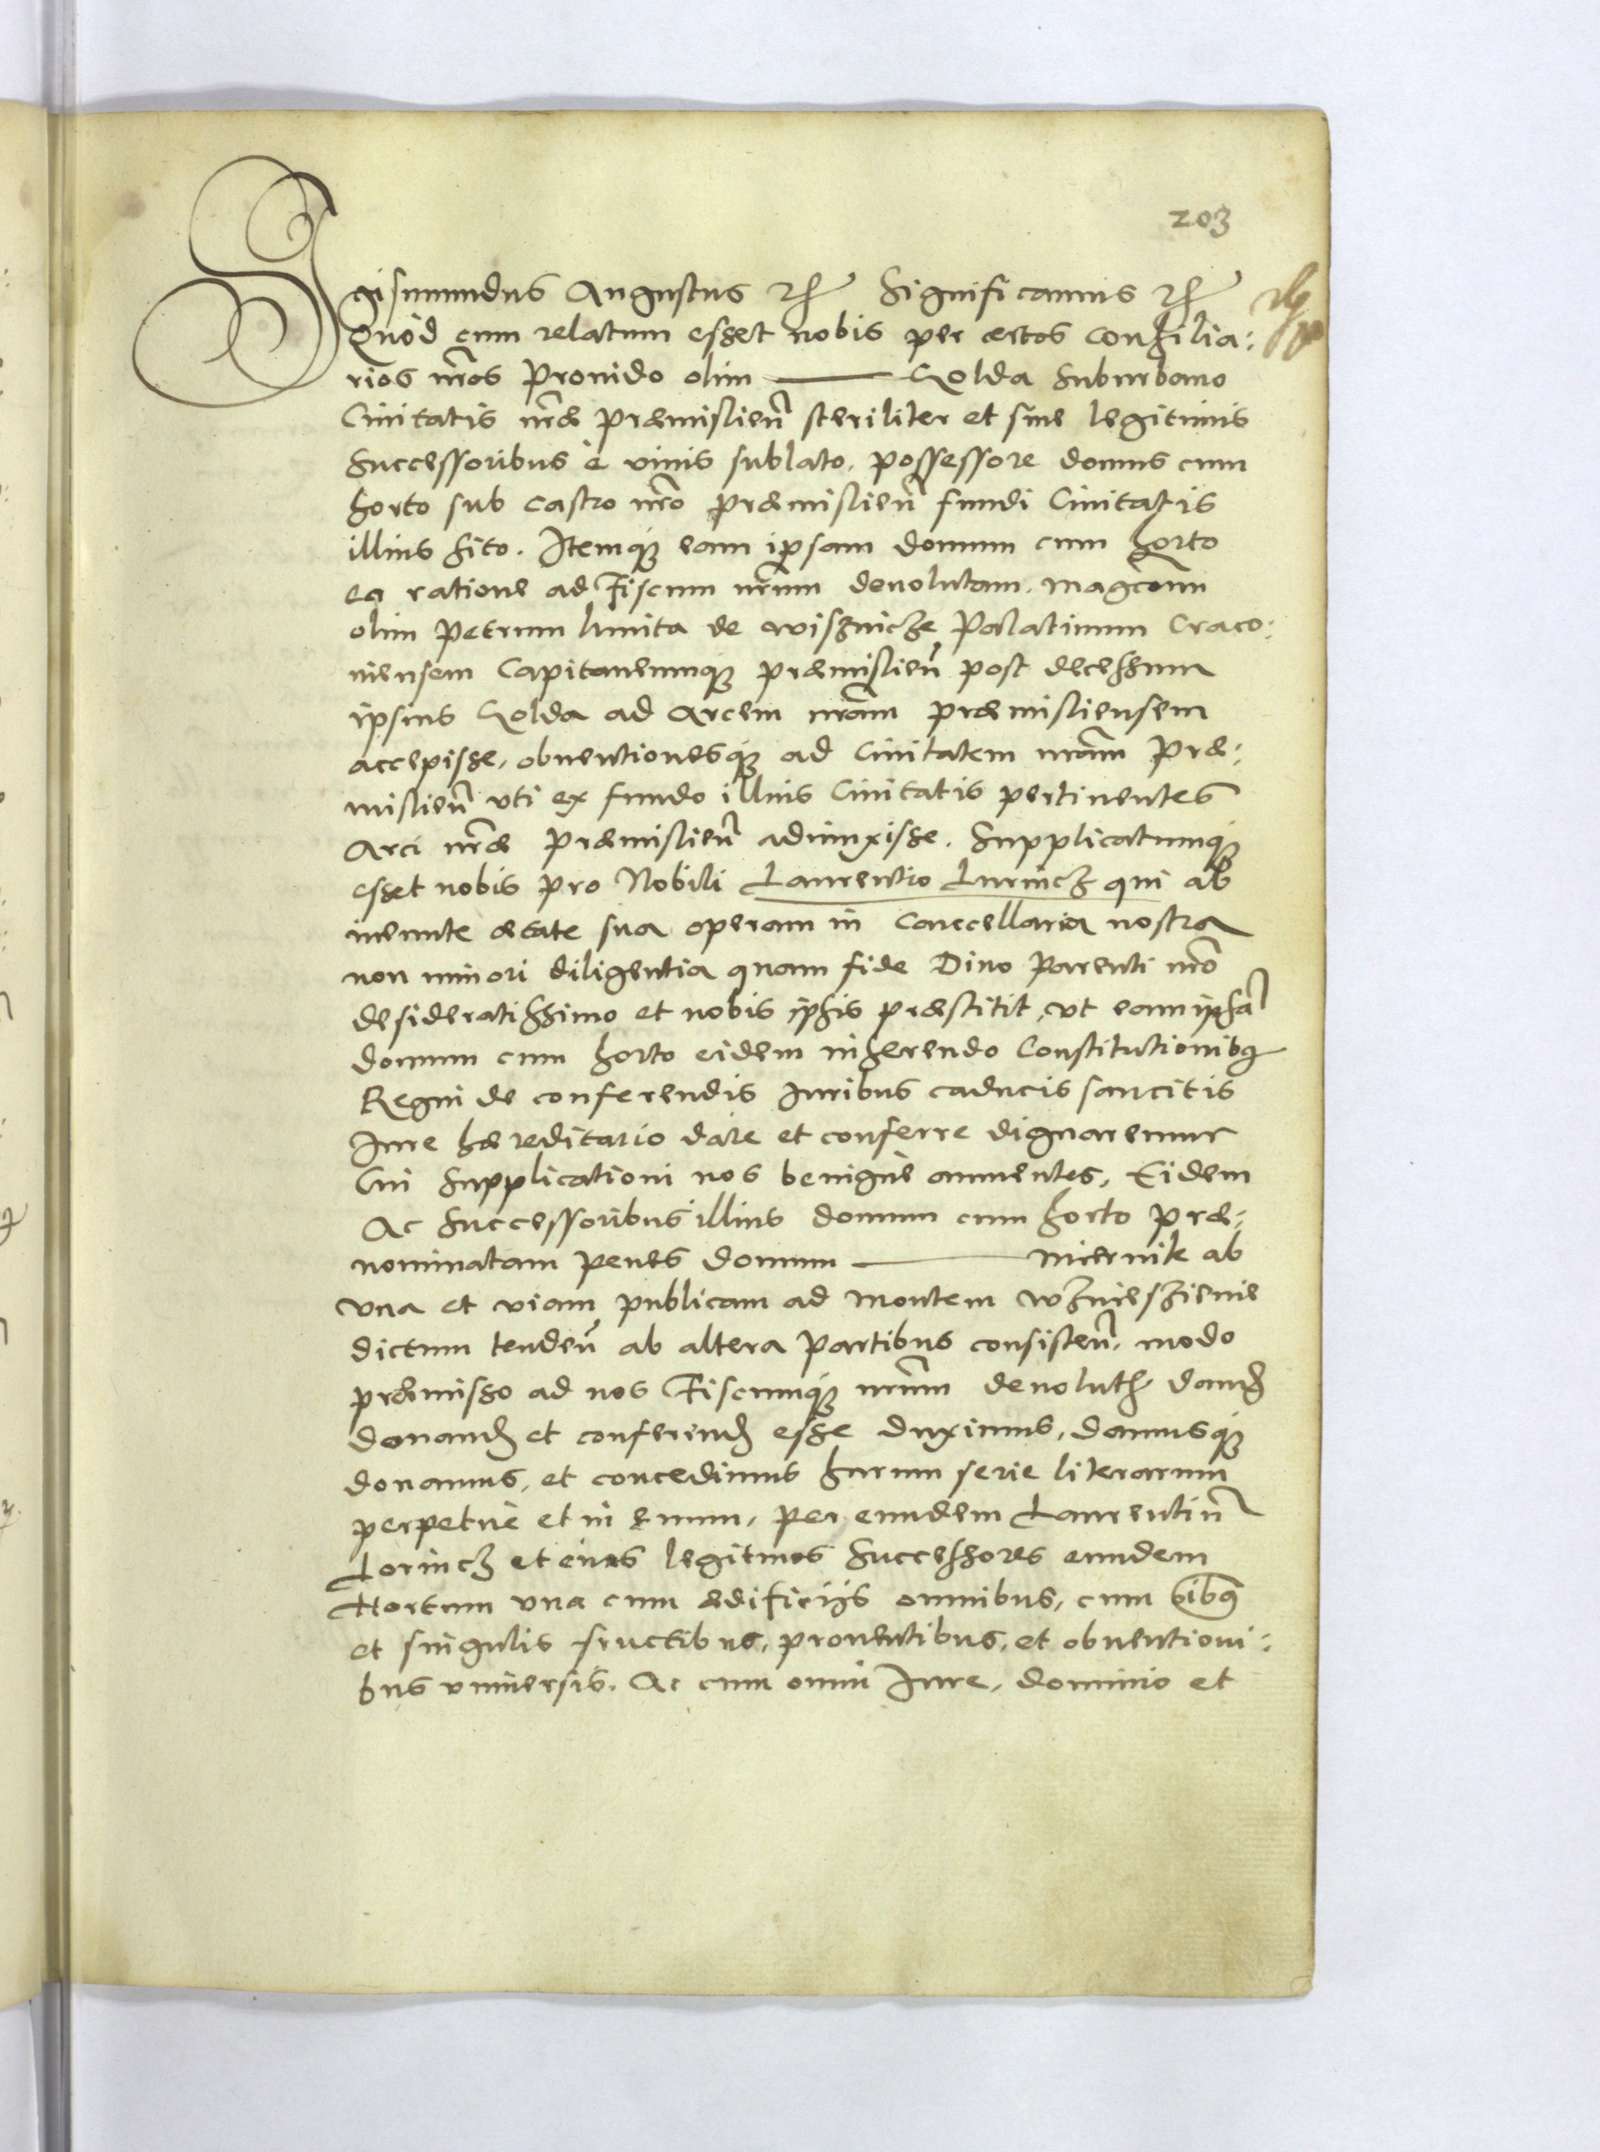 203
Sigismundus Augustus etc Significamus etc
Quòd cum relatum esset nobis per certos Consilia:
rios nros Prouido olim ——— Golda Suburbano
Ciuitatis nrae Praemislien steriliter et sine legitimis
Successoribus è viuis sublato, possessore domus cum
horto sub Castro nro praemislien fundi Ciuitatis
illius sito. Itemq eam ipsam domum cum horto
ea ratione ad Fiscum nrum deuolutam, Magcum
olim Petrum Kmita de Wisznicze Palatinum Craco:
niensem Capitaneumq praemislien post decessum
ipsius Golda ad Arcem nram praemisliensem
accepisse, obuentionesq ad Ciuitatem nram Prae:
mislien vti ex fundo illius Ciuitatis pertinentes
Arci nrae Praemislien adiunxisse. Supplicatumq
esset nobis pro Nobili Laurentio Lurincz qui ab
ineunte aetate sua operam in Cancellaria nostra
non minori diligentia quam fide Diuo Parenti nro
desideratissimo et nobis ipsis praestitit, vt eam ipsam
domum cum horto eidem inherendo Constitutionibq
Regni de conferendis Iuribus caducis sancitis
Iure haereditario dare et conferre dignaremur
Cui Supplicationi nos benignè annuentes, Eidem
Ac Successoribus illius domum cum horto prae:
nominatam penes domum ——— Miernik ab
vna et viam publicam ad montem Wzniesienie
dictum tenden ab altera partibus consisten, modo
praemisso ad nos Fiscumq nrum deuolut dand
donand et conferend esse duximus, damusq
donamus, et concedimus harum serie literarum
perpetuè et in aeuum, per eundem Laurentiu
Lorincz et eius legitimos Successores eundem
Hortum vna cum aedificijs omnibus, cum oibq
et singulis fructibus, prouentibus, et obuentioni:
bus vniuersis. Ac cum omni Iure, dominio et